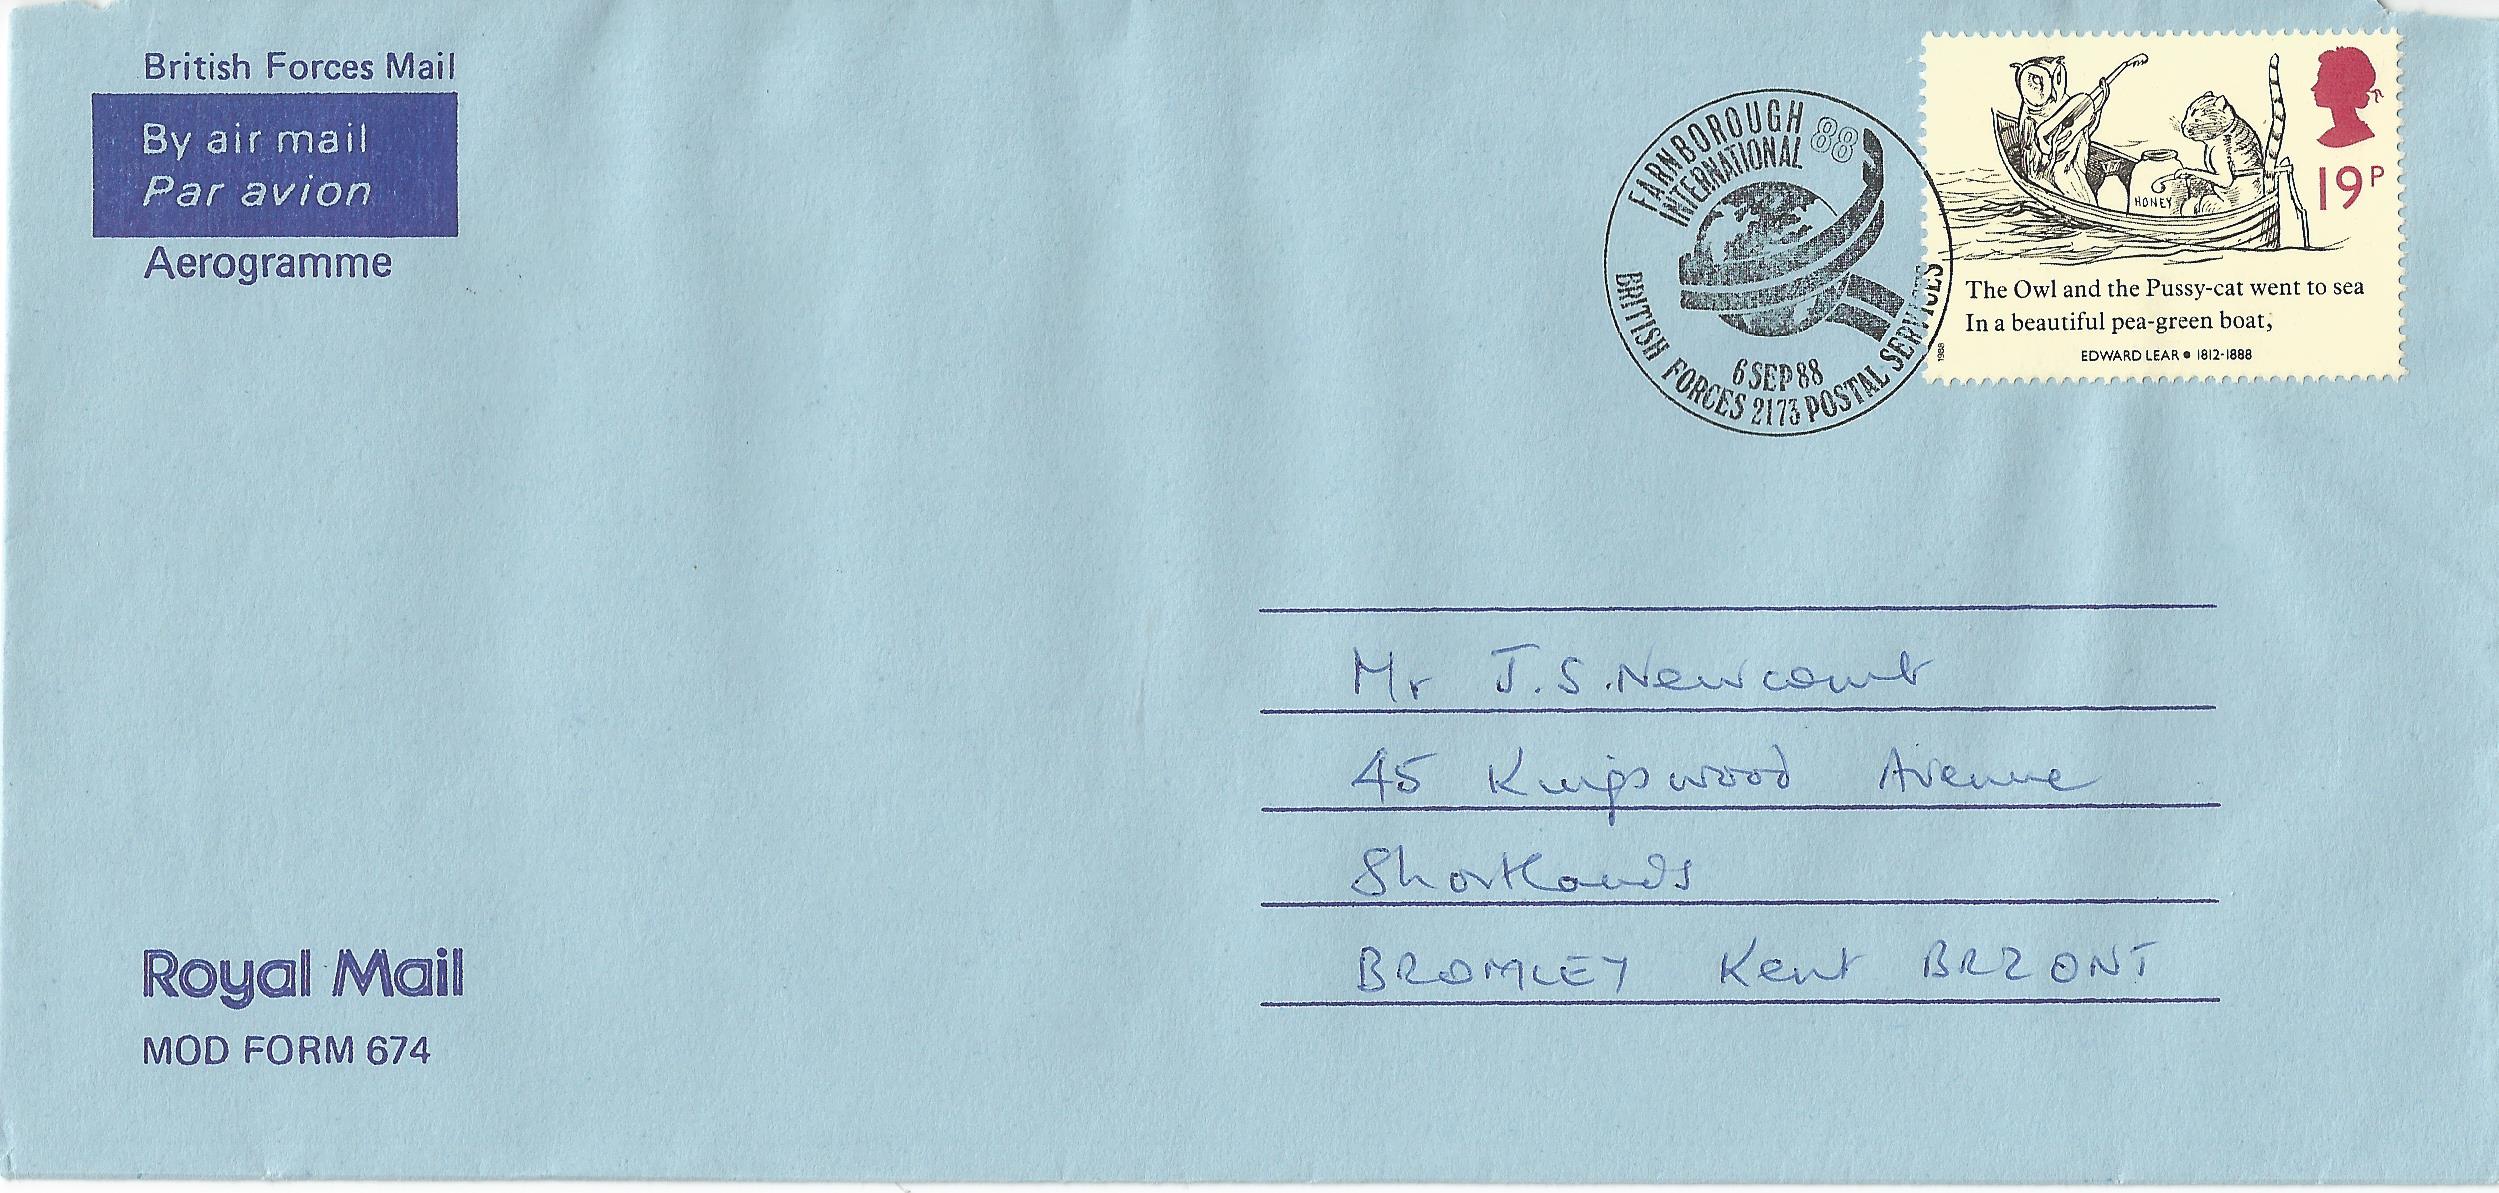 British Forces Mail
By air mail
Par avion
Aerogramme
FARNBOROUGH
INTERNATIONAL
88
6 SEP 88
BRITISH FORCES 2173 POSTAL SERVICES
HONEY
19P
The Owl and the Pussy-cat went to sea
In a beautiful pea-green boat,
EDWARD LEAR • 1812-1888
1988
Mr J.S. Newcomb
45 Kingswood Avenue
Shortlands
BROMLEY Kent BR2 0NT
Royal Mail
MOD FORM 674